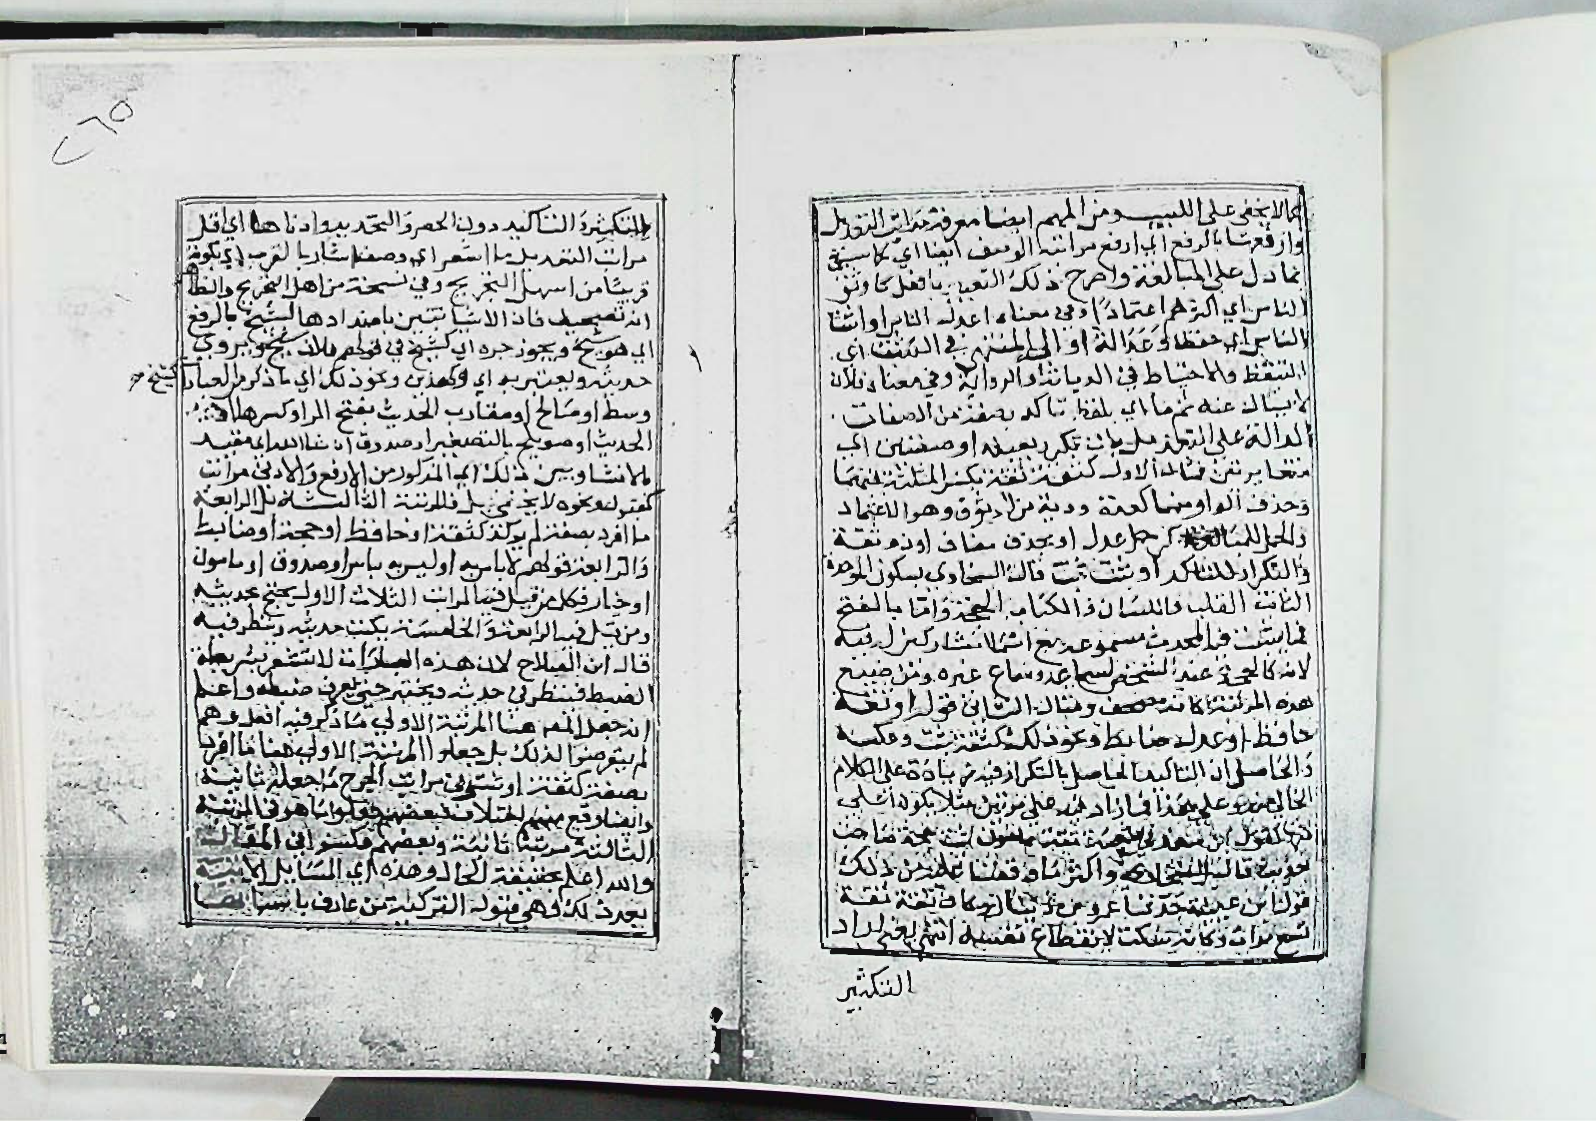 كما لا يخفى على اللبيب ومن المهم ايضا معرفة مراتب التعديل
وارفعها بالرفع اي ارفع مراتبه الوصف ايضا اي كما سبق
بما دل على المبالغة واصرح ذلك التعبير بافعل كاوثق
الناس اي اكثرهم اعتمادا وفي معناه اعدل الناس او اثبت
الناس اي حفظا وعدالة او اليه المنتهى في التثبت اي
التيقظ والاحتياط في الديانة والرواية وفي معناه فلان
لا يسال عنه ثم ما اي بلفظ تاكد بصفة من الصفات
الدالة على التعديل بان تكرر بعينه او صفتين اي
متغايرتين فمثال الاول كثقة ثقة بكسر المثلثة فيهما
وحذف الواو منهما كعدة ودية من الوثوق وهو الاعتماد
والحمل للمبالغة كرجل عدل او بحذف مضاف اي ذو ثقة
والتكرار للتاكيد او ثبت ثبت قال السخاوي بسكون الموحدة
الثابت القلب واللسان والكتاب الحجة واما بالفتح
فما يثبت فيه المحدث مسموعه مع اسماء المشاركين له فيه
لانه كالحجة عند الشخص لسماعه وسماع غيره ومن صيغ
هذه المرتبة كانه مصحف ومثال الثاني قوله او ثقة
حافظ او عدل ضابط او نحو ذلك كثقة ثبت وعكسه
والحاصل ان التاكيد الحاصل بالتكرار فيه زيادة على الكلام
الخالي منه وعلى هذا فما زاد على مرتين مثلا يكون اعلى
منها كقول ابن سعد في شعبة ثقة مامون ثبت حجة صاحب
حديث قال السخاوي واكثر ما وقفنا عليه من ذلك
قول ابن عيينة حدثنا عمرو بن دينار وكان ثقة ثقة
تسع مرات وكانه سكت لانقطاع نفسه انتهى يعني اراد
التكثير
٢٦٥
التكثير والتاكيد دون الحصر والتحديد وادناها اي اقل
مراتب التعديل ما اشعر اي وصف اشار بالقرب اي بكونه
قريبا من اسهل التجريح وفي نسخة من اهل التجريح والظاهر
انه تصحيف فان الاشياء تتبين باضدادها كشيخ بالرفع
اي هو شيخ ويجوز جره اي كشيخ في قولهم فلان شيخ ويروى
حديثه ويعتبر به اي وكهذين ونحو ذلك اي ما ذكر من العبارة
كشيخ
وسط او صالح او مقارب الحديث بفتح الراء وكسرها
الحديث او صويلح بالتصغير او صدوق ان شاء الله اي مقيد
بالانشاء وبين ذلك اي المذكور من الارفع والادنى مراتب
كمقبول ونحوه لا يخفى بل فالمرتبة الثالثة بل الرابعة
ما افرد بصفة لم يوكد كثقة او حافظ او حجة او ضابط
والرابعة قولهم لا باس به او ليس به باس او صدوق او مامون
او خيار فكل من قيل فيه المراتب الثلاث الاول يحتج بحديثه
ومن قيل فيه الرابعة والخامسة يكتب حديثه وينظر فيه
قال ابن الصلاح لان هذه العبارات لا تشعر بشريطة
الضبط فينظر في حديثه ويختبر حتى يعرف ضبطه واعلم
انه جعل المص هنا المرتبة الاولى ما ذكر فيه افعل وهم
لم يتعرضوا لذلك بل جعلوا المرتبة الاولى هنا ما افرد
بصفة كثقة او شيء في مراتب الجرح ما جعله ثانية
وايضا وقع منهم اختلاف فبعضهم جعلوا ما هو في المرتبة
الثالثة مرتبة ثانية وبعضهم عكسوا في المقالة
والله اعلم بحقيقة الحال وهذه اي المسايل الاتية
بعد ذلك وهي قوله التزكية من عارف باسبابها